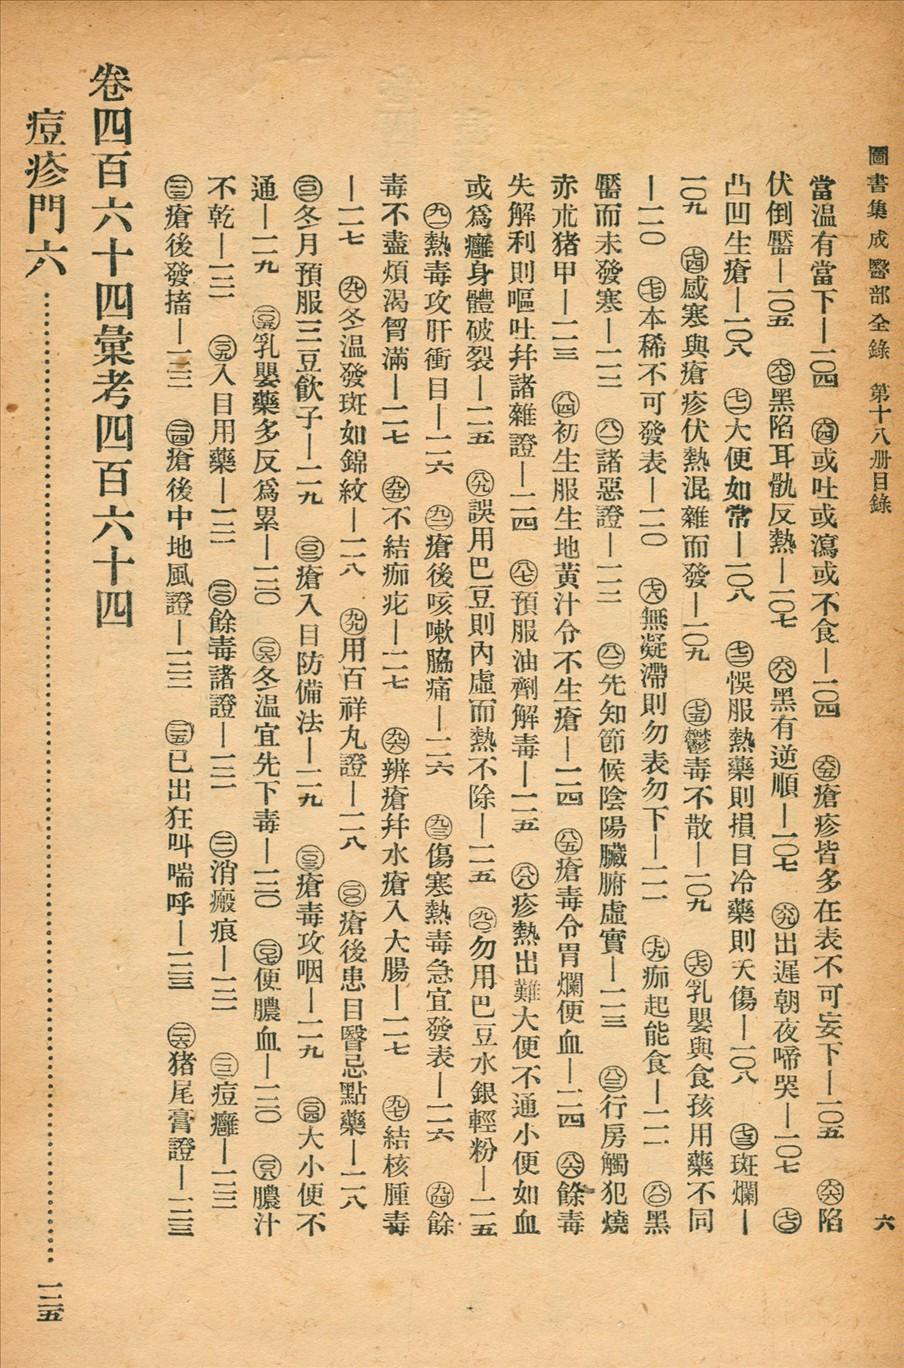 圖書集成醫部全錄　第十八册目錄　六
當温有當下—一〇四　㊅㊃或吐或瀉或不食—一〇四　㊅㊄瘡疹皆多在表不可妄下—一〇五　㊅㊅陷
伏倒黶—一〇五　㊅㊆黑陷耳骩反熱—一〇七　㊅㊇黑有逆順—一〇七　㊅㊈出遲朝夜啼哭—一〇七　㊆〇
凸凹生瘡—一〇八　㊆㊀大便如常—一〇八　㊆㊁悞服熱藥則損目冷藥則夭傷—一〇八　㊆㊂斑爛—
一〇九　㊆㊃感寒與瘡疹伏熱混雜而發—一〇九　㊆㊄鬱毒不散—一〇九　㊆㊅乳嬰與食孩用藥不同
—一一〇　㊆㊆本稀不可發表—一一〇　㊆㊇無凝滯則勿表勿下—一一一　㊆㊈痂起能食—一一一　㊇〇黑
黶而未發寒—一一二　㊇㊀諸惡證—一一二　㊇㊁先知節候陰陽臟腑虛實—一一三　㊇㊂行房觸犯燒
赤朮猪甲—一一三　㊇㊃初生服生地黃汁令不生瘡—一一四　㊇㊄瘡毒令胃爛便血—一一四　㊇㊅餘毒
失解利則嘔吐幷諸雜證—一一四　㊇㊆預服油劑解毒—一一五　㊇㊇疹熱出難大便不通小便如血
或爲癰身體破裂—一一五　㊇㊈誤用巴豆則內虛而熱不除—一一五　㊈〇勿用巴豆水銀輕粉—一一五
㊈㊀熱毒攻肝衝目—一一六　㊈㊁瘡後咳嗽脇痛—一一六　㊈㊂傷寒熱毒急宜發表—一一六　㊈㊃餘
毒不盡煩渴胷滿—一一七　㊈㊄不結痂疕—一一七　㊈㊅辨瘡幷水瘡入大腸—一一七　㊈㊆結核腫毒
—一一七　㊈㊇冬温發斑如錦紋—一一八　㊈㊈用百祥丸證—一一八　㊀〇〇瘡後患目醫忌點藥—一一八
㊀〇㊀冬月預服三豆飲子—一一九　㊀〇㊁瘡入目防備法—一一九　㊀〇㊂瘡毒攻咽—一一九　㊀〇㊃大小便不
通—一一九　㊀〇㊄乳嬰藥多反爲累—一二〇　㊀〇㊅冬温宜先下毒—一二〇　㊀〇㊆便膿血—一二〇　㊀〇㊇膿汁
不乾—一二一　㊀〇㊈入目用藥—一二一　㊀㊀〇餘毒諸證—一二一　㊀㊀㊀消瘢痕—一二一　㊀㊀㊁痘癰—一二二
㊀㊀㊂瘡後發搐—一二二　㊀㊀㊃瘡後中地風證—一二二　㊀㊀㊄已出狂叫喘呼—一二三　㊀㊀㊅猪尾膏證—一二三
卷四百六十四彙考四百六十四
痘疹門六……一二五